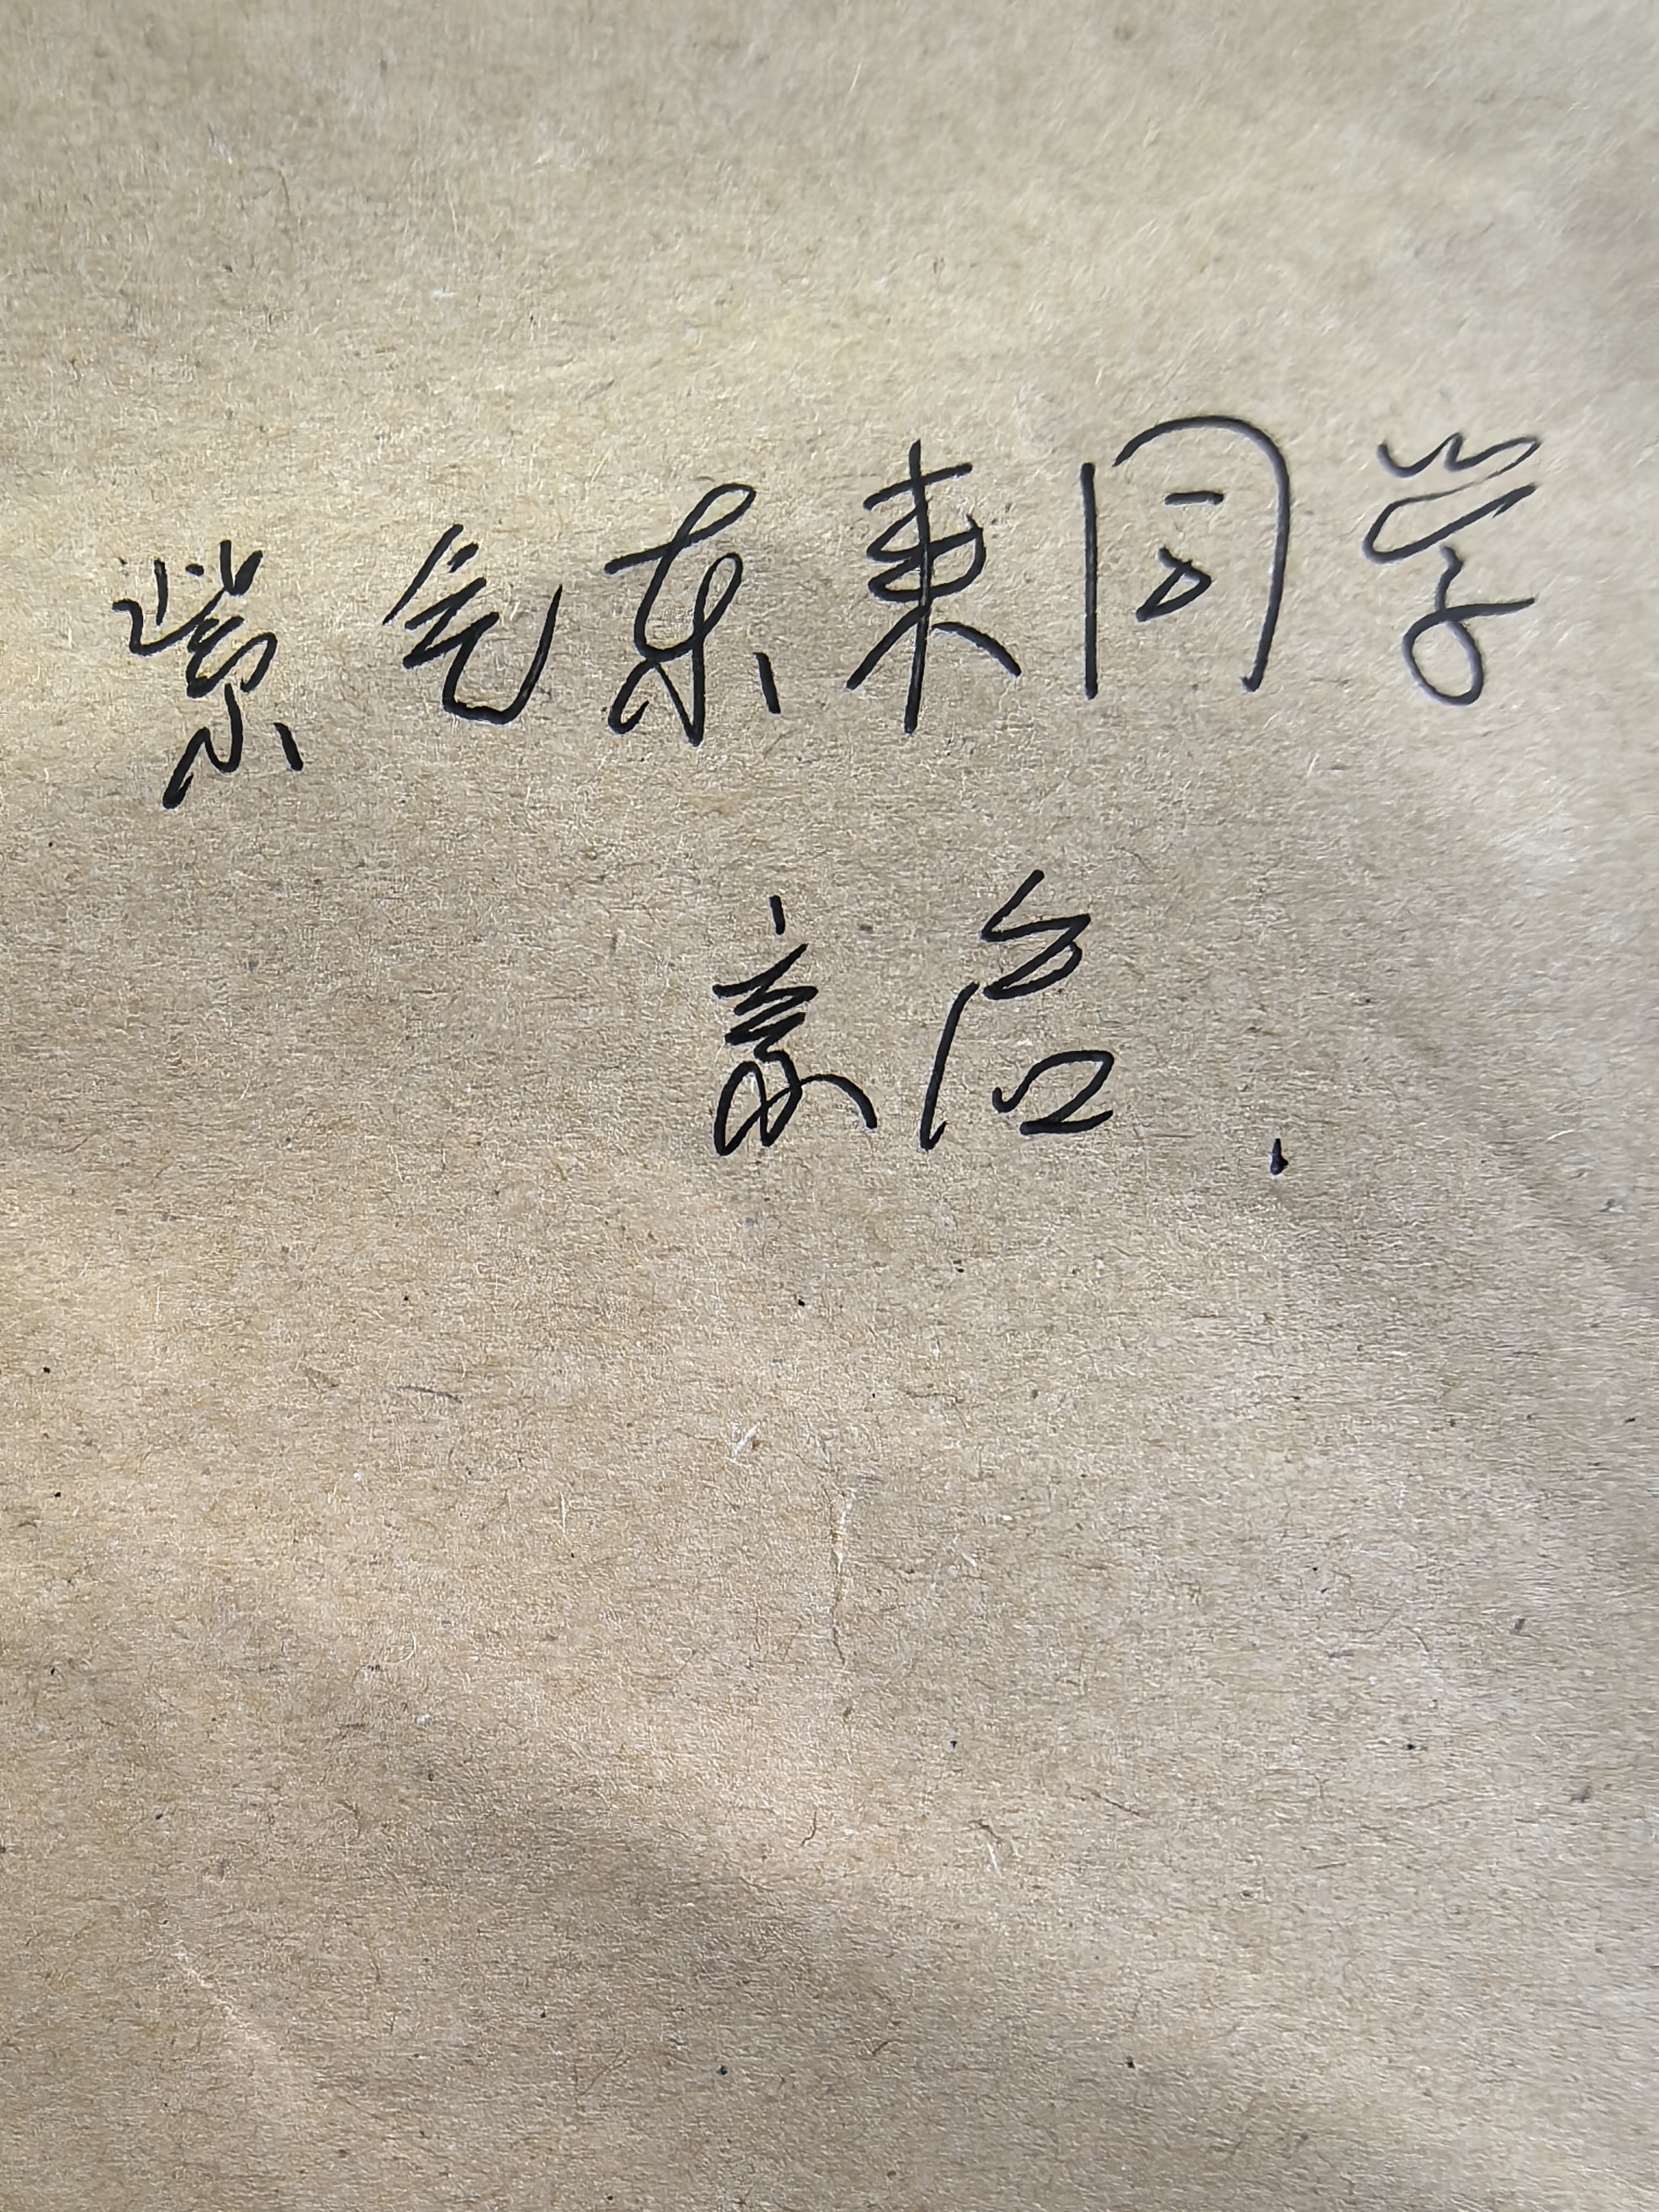 紫气东来同学
亲启.